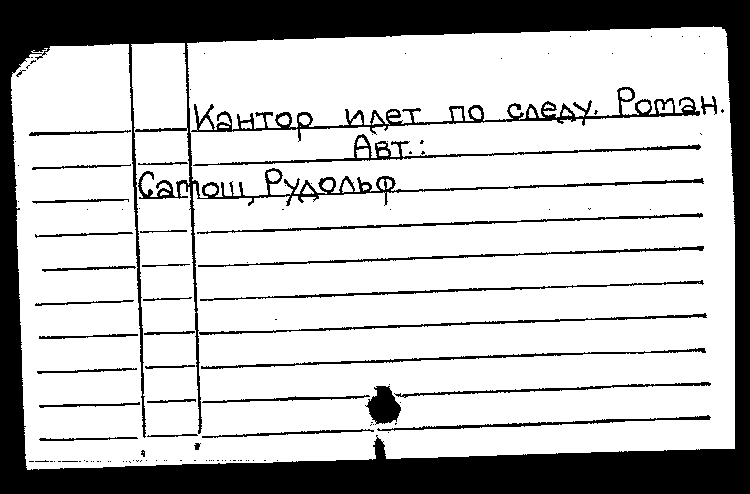 Кантор идет по следу. Роман.
Авт.:
Самош, Рудольф.